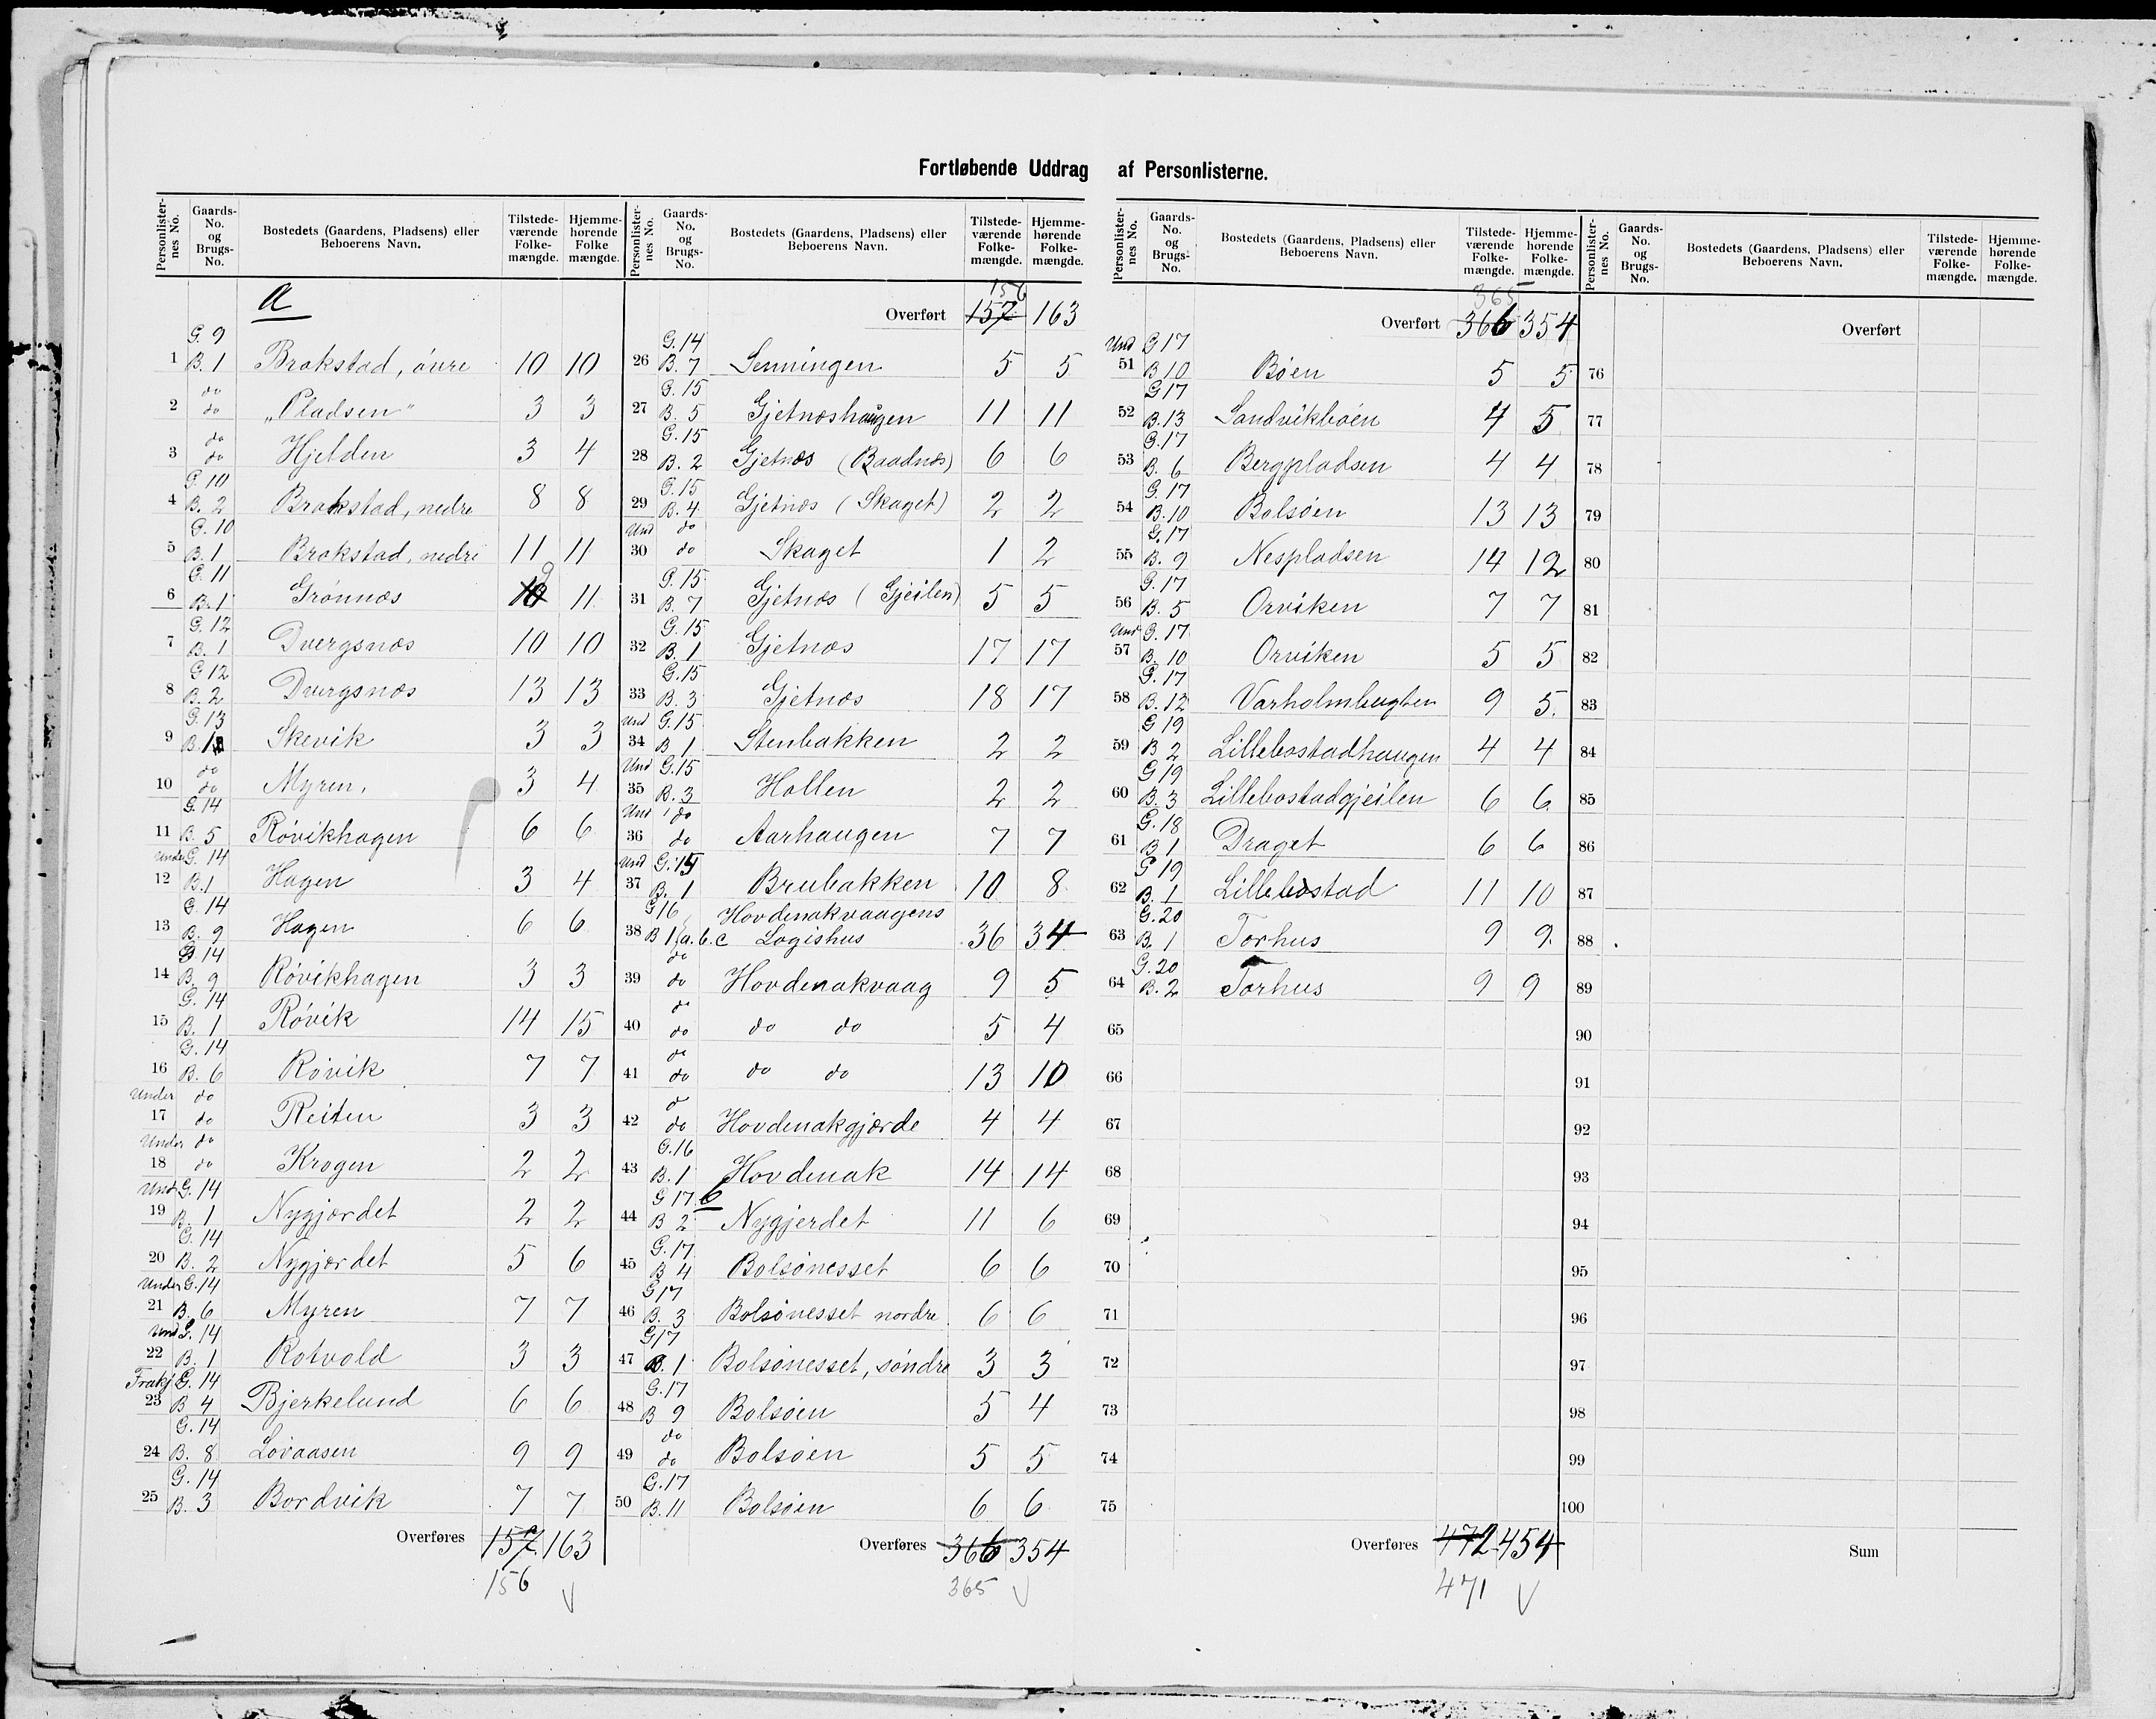 Fortløbende Uddrag af Personlisterne.
Personlisternes No. | Gaards-No. og Brugs-No. | Bostedets (Gaardens, Pladsens) eller Beboerens Navn. | Tilstedeværende Folkemængde. | Hjemmehørende Folkemængde.
a
1 G. 9 B. 1 Brakstad, øvre 10 10
2 do do „Pladsen" 3 3
3 do do Hjelden 3 4
4 G. 10 B. 2 Brakstad, nedre 8 8
5 G. 10 B. 1 Brakstad, nedre 11 11
6 G. 11 B. 1 Grønnæs 10 9 11
7 G. 12 B. 1 Dvergsnæs 10 10
8 G 12 B. 2 Dvergsnæs 13 13
9 G. 13 B. 1 Skevik 3 3
10 do do Myren, 3 4
11 G. 14 B. 5 Røvikhagen 6 6
12 Under G. 14 B. 1 Hagen 3 4
13 G. 14 B. 9 Hagen 6 6
14 G. 14 B. 9 Røvikhagen 3 3
15 G. 14 B. 1 Røvik 14 15
16 G. 14 B. 6 Røvik 7 7
17 Under do do Reiten 3 3
18 Under do do Krogen 2 2
19 Und. G. 14 B. 1 Nygjærdet 2 2
20 G. 14 B. 2 Nygjærdet 5 6
21 Under G. 14 B. 6 Myren 7 7
22 Und G. 14 B. 1 Rotvold 3 3
23 Frakj G. 14 B 4 Bjerkelund 6 6
24 G. 14 B. 8 Løvaasen 9 9
25 G. 14 B. 3 Bordvik 7 7
Overføres 157 163
156 V
Overført 156 157 163
26 G. 14 B. 7 Senningen 5 5
27 G. 15 B. 5 Gjetnæshaugen 11 11
28 G. 15 B. 2 Gjetnæs (Baadnæs) 6 6
29 G. 15 B. 4 Gjetnæs (Skaget) 2 2
30 Und do do Skaget 1 2
31 G. 15 B. 7 Gjetnæs (Gjeilen) 5 5
32 G. 15 B. 1 Gjetnæs 17 17
33 G. 15 B. 3 Gjetnæs 18 17
34 Und G. 15 B. 1 Stenbakken 2 2
35 Und G. 15 B. 3 Hollen 2 2
36 Und do do Aarhaugen 7 7
37 Und G. 15 B. 1 Brubakken 10 8
38 G 16 B 1, a. b. c Hovdenakvaagens Logishus 36 34
39 do do Hovdenakvaag 9 5
40 do do do do 5 4
41 do do do do 13 10
42 do do Hovdenakgjærde 4 4
43 G. 16 B. 1 Hovdenak 14 14
b
44 G 17 B 2 Nygjerdet 11 6
45 G. 17 B 4 Bolsønesset 6 6
46 G 17 B. 3 Bolsønesset nordre 6 6
47 G 17 B. 1 Bolsønesset, søndre 3 3
48 G. 17 B 9 Bolsøen 5 4
49 do do Bolsøen 5 5
50 G. 17 B. 11 Bolsøen 6 6
Overføres 366 354
365 V
Overført 365 366 354
51 Und G 17 B 10 Bøen 5 5
52 G 17 B. 13 Sandvikbøen 4 5
53 G. 17 B. 6 Bergpladsen 4 4
54 G. 17 B. 10 Bolsøen 13 13
55 G. 17 B. 9 Nespladsen 14 12
56 G. 17 B. 5 Orviken 7 7
57 Und G. 17 B. 10 Orviken 5 5
58 G. 17 B. 12 Varholmbugten 9 5.
59 G 19 B 2 Lillebostadhaugen 4 4
60 G 19 B. 3 Lillebostadgjeilen 6 6
61 G. 18 B 1 Draget 6 6
62 G 19 B. 1 Lillebostad 11 10
63 G. 20 B. 1 Torhus 9 9.
64 G. 20 B. 2 Torhus 9 9
65
66
67
68
69
70
71
72
73
74
75
Overføres 472 454
471 V
Overført
76
77
78
79
80
81
82
83
84
85
86
87
88
89
90
91
92
93
94
95
96
97
98
99
100
Sum